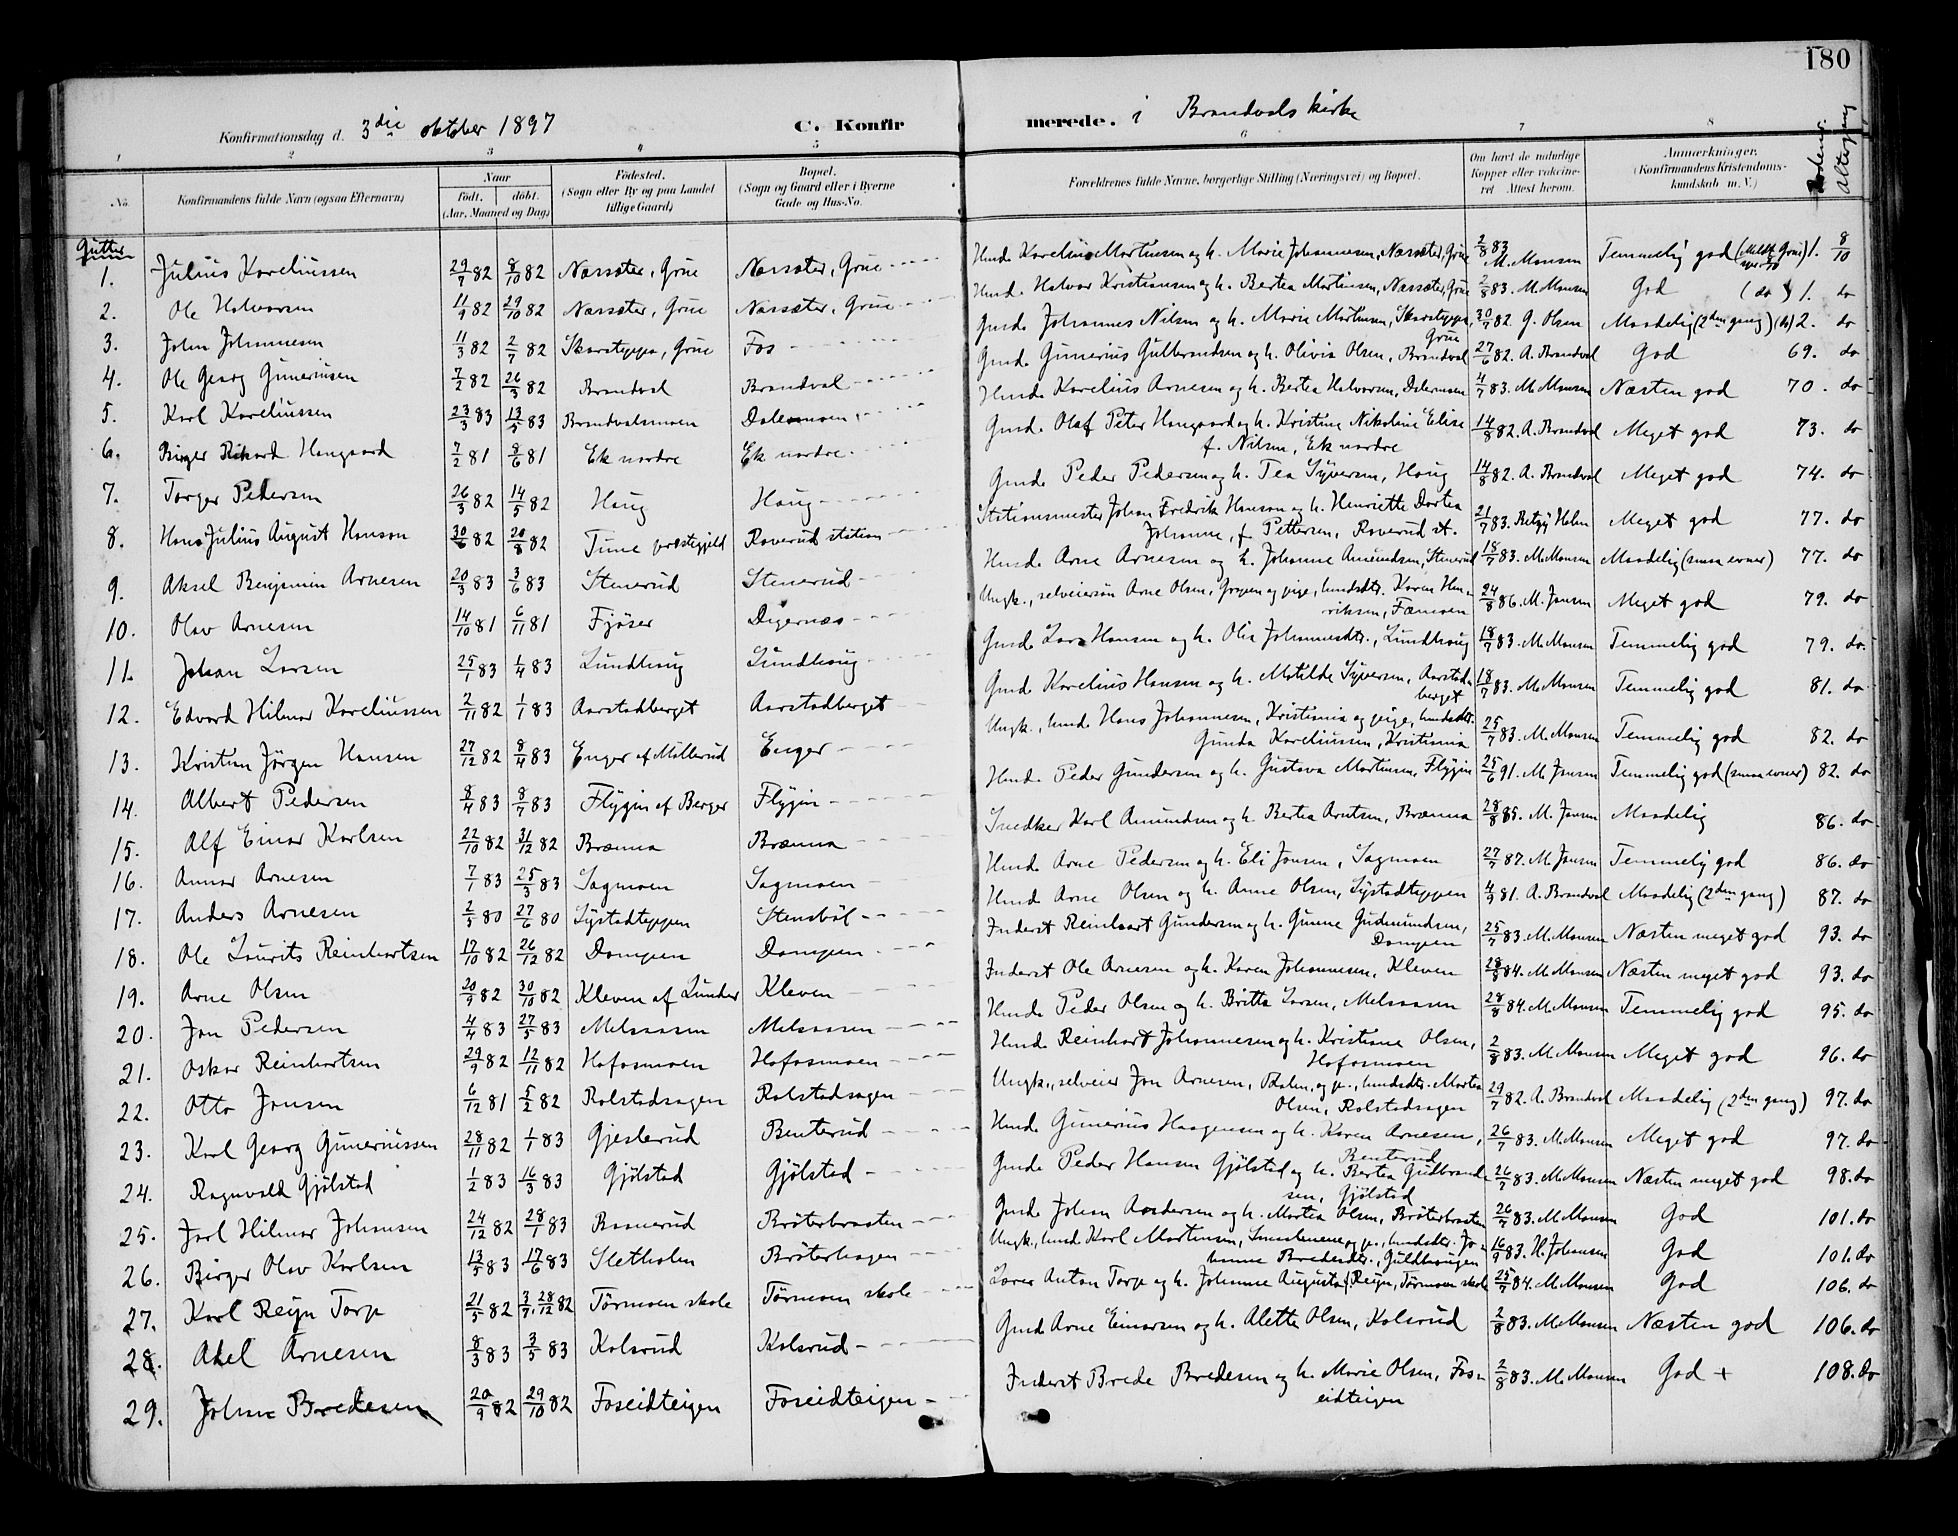 180
Konfirmationsdag d. 3die oktober 1897 C. Konfirmerede. i Brandvals kirke
1 2 3 4 5 6 7 8
No. Konfirmandens fulde Navn (ogsaa Efternavn) Naar født. døbt. (Aar, Maaned og Dag) Fødested. (Sogn eller By og paa Landet tillige Gaard) Bopæl. (Sogn og Gaard eller i Byerne Gade og Hus-No. Forældrenes fulde Navne, borgerlige Stilling (Næringsvei) og Bopæl. Om havt de naturlige Kopper eller vakcineret Attest herom. Anmærkninger. (Konfirmandens Kristendomskundskab m. V.) Altergang
Gutter
1. Julius Kareliussen 29/7 82 8/10 82 Næssæter, Grue Næssæter, Grue Husmd. Karelius Martinsen og h. Marie Johannesen, Næssæter, Grue 2/8 83 M. Monsen Temmelig god 1. 8/10
2. Ole Halvorsen 11/9 82 29/10 82 Næssæter, Grue Næssæter, Grue Husmd. Halvor Kristiansen og h. Bertea Martinsen, Næssæter, Grue 2/8 83. M. Monsen God (do) 1. do
3. John Johannesen 11/3 82 2/7 82 Skarateppa, Grue Fos Gmd. Johannes Nilsen og h. Marie Martinsen, Skarateppa, Grue 30/7 82 G. Olsen Maadelig (2den gang) 2. do
4. Ole Georg Guneriusen 7/2 82 26/3 82 Brandval Brandval Gmd. Gunerius Gulbrandsen og h. Olivia Olsen, Brandval 27/6 82. A. Brandval God 69. do
5. Karl Kareliussen 23/3 83 13/5 83 Brandvalsmoen Dalesmoen Husmd. Karelius Arnesen og h. Bertea Halvorsen, Dalesmoen 4/7 83. M. Monsen Næsten god 70. do
6. Birger Rikard Haugaard 7/2 81 8/6 81 Ek nordre Ek nordre Gmd. Olaf Peter Haugaard og h. Kristine Nikoline Elise f. Nilsen, Ek nordre 14/8 82. A. Brandval Meget god 73. do
7. Torger Pedersen 26/3 82 14/5 82 Haug Haug Gmd. Peder Pedersen og h. Tea Syversen, Haug 14/8 82. A. Brandval Meget god 74. do
8. Hans Julius August Hanson 30/6 82 20/8 82 Tune præstegjeld Roverud station Stationsmester Johan Fredrik Hanson og h. Henriette Dortea Johanne, f. Pettersen, Roverud st. 21/7 83. Betzy Holm Meget god 77. do
9. Aksel Benjamin Arnesen 20/3 83 3/6 83 Stenerud Stenerud Husmd. Arne Arnesen og h. Johanne Amundsen, Stenerud 18/7 83. M. Monsen Maadelig (smaa evner) 77. do
10. Olav Arnesen 14/10 81 6/11 81 Fjøser Digernæs Ungk., selveiersøn Arne Olsen, og pige, husmdsdtr. Karen Henriksen, Fæmoen 24/8 86. M. Jonsen Meget god 79. do
11. Johan Larsen 25/1 83 1/4 83 Lundhaug Lundhaug Gmd. Lars Hansen og h. Olia Johannesdtr., Lundhaug 18/7 83. M. Monsen Temmelig god 79. do.
12. Edvard Hilmar Kareliussen 2/11 82 1/1 83 Aarstadberget Aarstadberget Gmd. Karelius Hansen og h. Matilde Syversen, Aarstadberget 18/7 83. M. Monsen Temmelig god 81. do
13. Kristian Jørgen Hansen 27/12 82 8/4 83 Enger af Møllerud Enger Ungk., husmd. Hans Johannesen, Kristiania og pige, husmdsdtr. Gunda Kareliussen, Kristiania 25/7 83. M. Monsen Temmelig god 82. do
14. Albert Pedersen 8/4 83 8/7 83 Flygin af Berger Flygin Husmd. Peder Gundersen og h. Gustava Martinsen, Flygin 25/6 91. M. Jonsen Temmelig god (smaa evner) 82. do
15. Alf Einar Karlsen 22/10 82 31/12 82 Brænna Brænna Snedker Karl Amundsen og h. Bertea Arntsen, Brænna 28/8 85. M. Jonsen Maadelig 86. do
16. Annar Arnesen 7/1 83 25/3 83 Sagmoen Sagmoen Husmd. Arne Pedersen og h. Eli Jonsen, Sagmoen 27/7 87. M. Jonsen Temmelig god 86. do
17. Anders Arnesen 2/5 80 27/6 80 Systadteppen Stensbøl Husmd. Arne Olsen og h. Anne Olsen, Systadteppen 4/9 81. A. Brandval Maadelig (2den gang) 87. do
18. Ole Laurits Reinhartsen 17/10 82 26/12 82 Dompen Dompen Inderst Reinhart Gundersen og h. Gunne Gudmundsen, Dompen 25/7 83. M. Monsen Næsten meget god 93. do
19. Arne Olsen 20/9 82 30/10 82 Kleven af Lunder Kleven Inderst Ole Arnesen og h. Karen Johannesen, Kleven 28/8 84. M. Monsen Næsten meget god 93. do
20. Jon Pedersen 4/4 83 27/5 83 Melsaasen Melsaasen Husmd. Peder Olsen og h. Britta Larsen, Melsaasen 28/8 84. M. Monsen Temmelig god 95. do
21. Oskar Reinhartsen 29/9 82 12/11 82 Hofosmoen Hofosmoen Husmd. Reinhart Johannesen og h. Kristiane Olsen, Hofosmoen 2/8 83. M. Monsen Meget god 96. do
22. Otto Jonsen 6/12 81 5/2 82 Rolstadsagen Rolstadsagen Ungk., selveier Jon Arnesen, og p., husmdsdtr. Martea Olsen, Rolstadsagen 29/7 82. A. Brandval Maadelig (2den gang) 97. do
23. Karl Georg Guneriussen 28/11 82 1/1 83 Gjesterud Benterud Husmd. Gunerius Haagensen og h. Karen Arnesen, Benterud 26/7 83. M. Monsen Meget god 97. do
24. Ragnvald Gjølstad 1/2 83 16/3 83 Gjølstad Gjølstad Gmd. Peder Hansen Gjølstad og h. Bertea Gulbrandsen, Gjølstad 26/7 83. M. Monsen Næsten meget god 98. do
25. Jarl Hilmar Johansen 24/12 82 28/1 83 Basnerud Brøterbraaten Gmd. Johan Andersen og h. Martea Olsen, Brøterbraaten 26/7 83. M. Monsen God 101. do
26. Birger Olav Karlsen 13/5 83 17/6 83 Sletholen Brøterhagen Ungk., husmd. Karl Martinsen, og p., husmdsdtr. Johanne Bredesdtr., Guldhaugen 16/9 83. H. Johansen God 101. do
27. Karl Reyn Torp 21/5 82 3/7, 28/12 82 Tørmoen skole Tørmoen skole Lærer Anton Torp og h. Johanne Augusta f. Reyn, Tørmoen skole 25/7 84. M. Monsen God 106. do
28. Aksel Arnesen 8/3 83 3/5 83 Kolsrud Kolsrud Gmd. Arne Einarsen og h. Alette Olsen, Kolsrud 2/8 83. M. Monsen Næsten god 106. do
29. Johan Bredesen 20/9 82 29/10 82 Foseidteigen Foseidteigen Inderst Brede Bredesen og h. Marie Olsen, Foseidteigen 2/8 83. M. Monsen God + 108. do